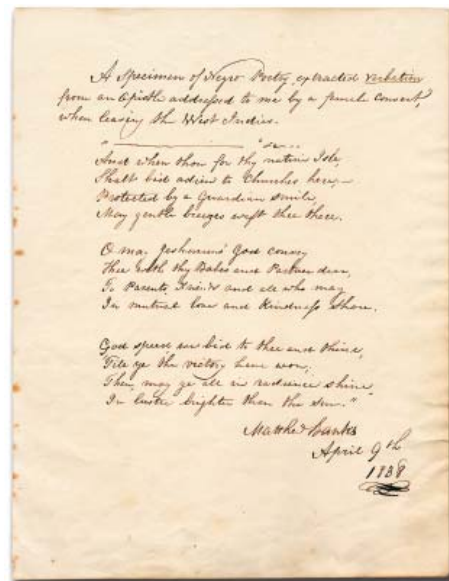 A Specimen of Negro Poetry, extracted verbatim
from an Epistle addressed to me by a female Convert,
when leaving the West Indies.
And when thou for thy native Isle
Shalt bid adieu to Churches here,—
Protected by a Guardian smile,
May gentle breezes waft thee there.
O may Jeshurun's God convey
Thee with thy Babes and Partner dear,
To Parents, Friends and all who may
In mutual love and Kindness share.
God speed we bid to thee and thine,
Till ye the victory have won,
Then, may ye all in radiance shine
In lustre brighter than the sun."
Matthew Banks
April 9th
1838